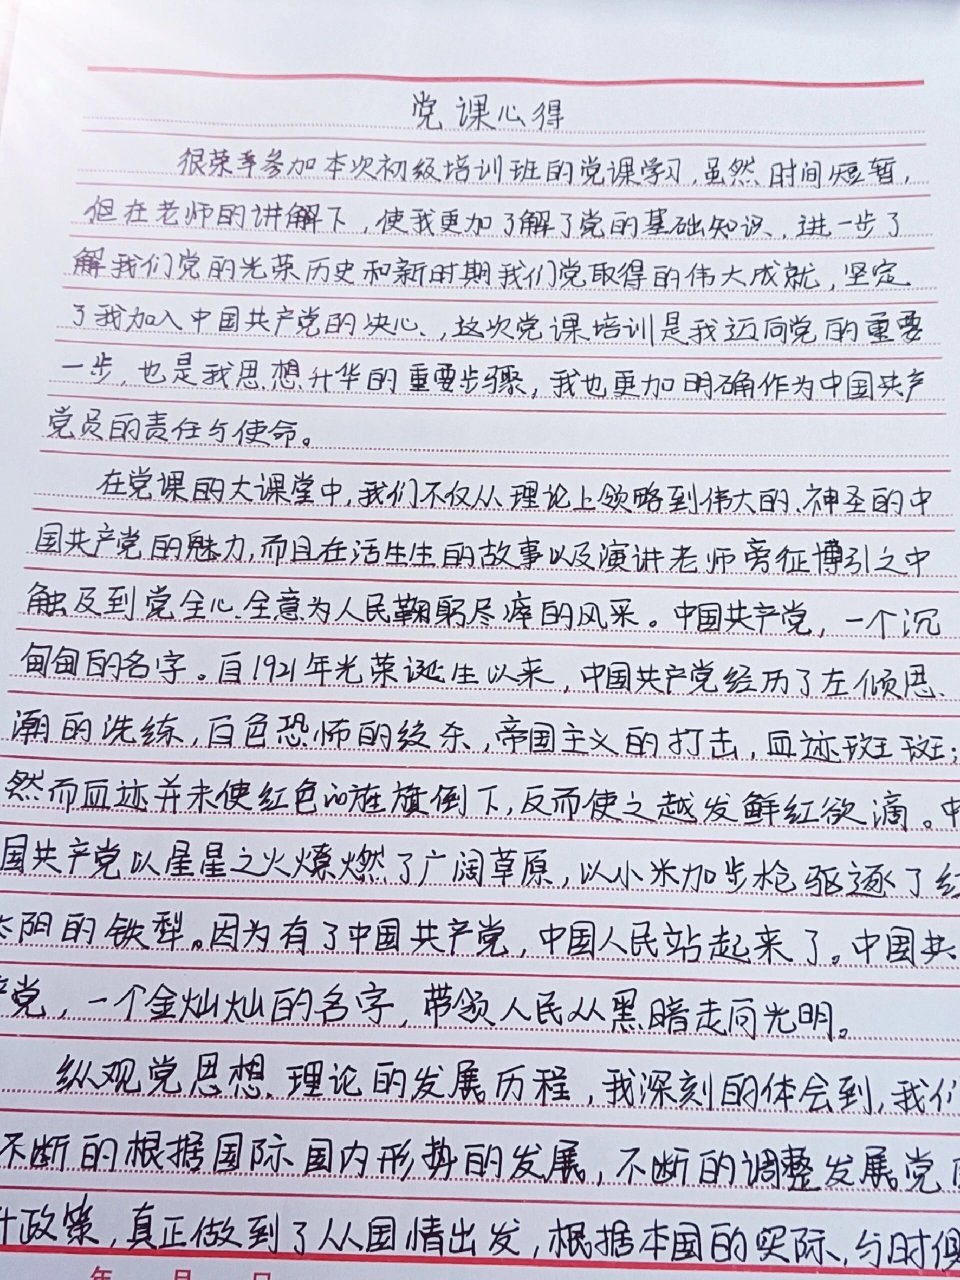 党课心得
很荣幸参加本次初级培训班的党课学习,虽然时间短暂,
但在老师的讲解下,使我更加了解了党的基础知识,进一步了
解我们党的光荣历史和新时期我们党取得的伟大成就,坚定
了我加入中国共产党的决心,这次党课培训是我迈向党的重要
一步,也是我思想升华的重要步骤,我也更加明确作为中国共产
党员的责任与使命。
在党课的大课堂中,我们不仅从理论上领略到伟大的、神圣的中
国共产党的魅力,而且在活生生的故事以及演讲老师旁征博引之中
触及到党全心全意为人民鞠躬尽瘁的风采。中国共产党,一个沉
甸甸的名字。自1921年光荣诞生以来,中国共产党经历了左倾思
潮的洗练,白色恐怖的绞杀,帝国主义的打击,血迹斑斑;
然而血迹并未使红色的旌旗倒下,反而使之越发鲜红欲滴。中
国共产党以星星之火燎燃了广阔草原,以小米加步枪驱逐了
阴的铁犁。因为有了中国共产党,中国人民站起来了。中国共
产党,一个金灿灿的名字,带领人民从黑暗走向光明。
纵观党思想、理论的发展历程,我深刻的体会到,我们
不断的根据国际国内形势的发展,不断的调整发展党的
政策,真正做到了从国情出发,根据本国的实际,与时俱
年 月 日